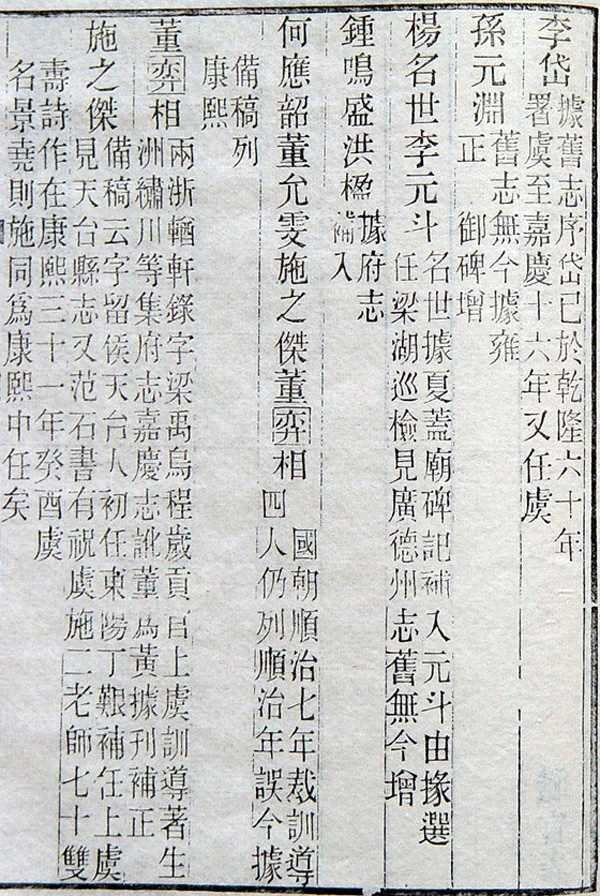 李岱據舊志序岱已於乾隆六十年
署虞至嘉慶十六年又任虞
孫元淵舊志無今據雍
正 御碑增
楊名世李元斗名世據夏蓋廟碑記補入元斗由掾選
任梁湖巡檢見廣德州志舊無今增
鍾鳴盛洪楹據府志
補入
何應韶董允雯施之傑董弈相國朝順治七年裁訓導
四人仍列順治年誤今據
備稿列
康熙
董弈相兩浙輶軒錄字梁禹烏程歲貢官上虞訓導著生
洲繡川等集府志嘉慶志訛董爲黃據刊補正
施之傑備稿云字留侯天台人初任東陽丁艱補任上虞
見天台縣志又范石書有祝虞施二老師七十雙
壽詩作在康熙三十一年癸酉虞
名景堯則施同爲康熙中任矣